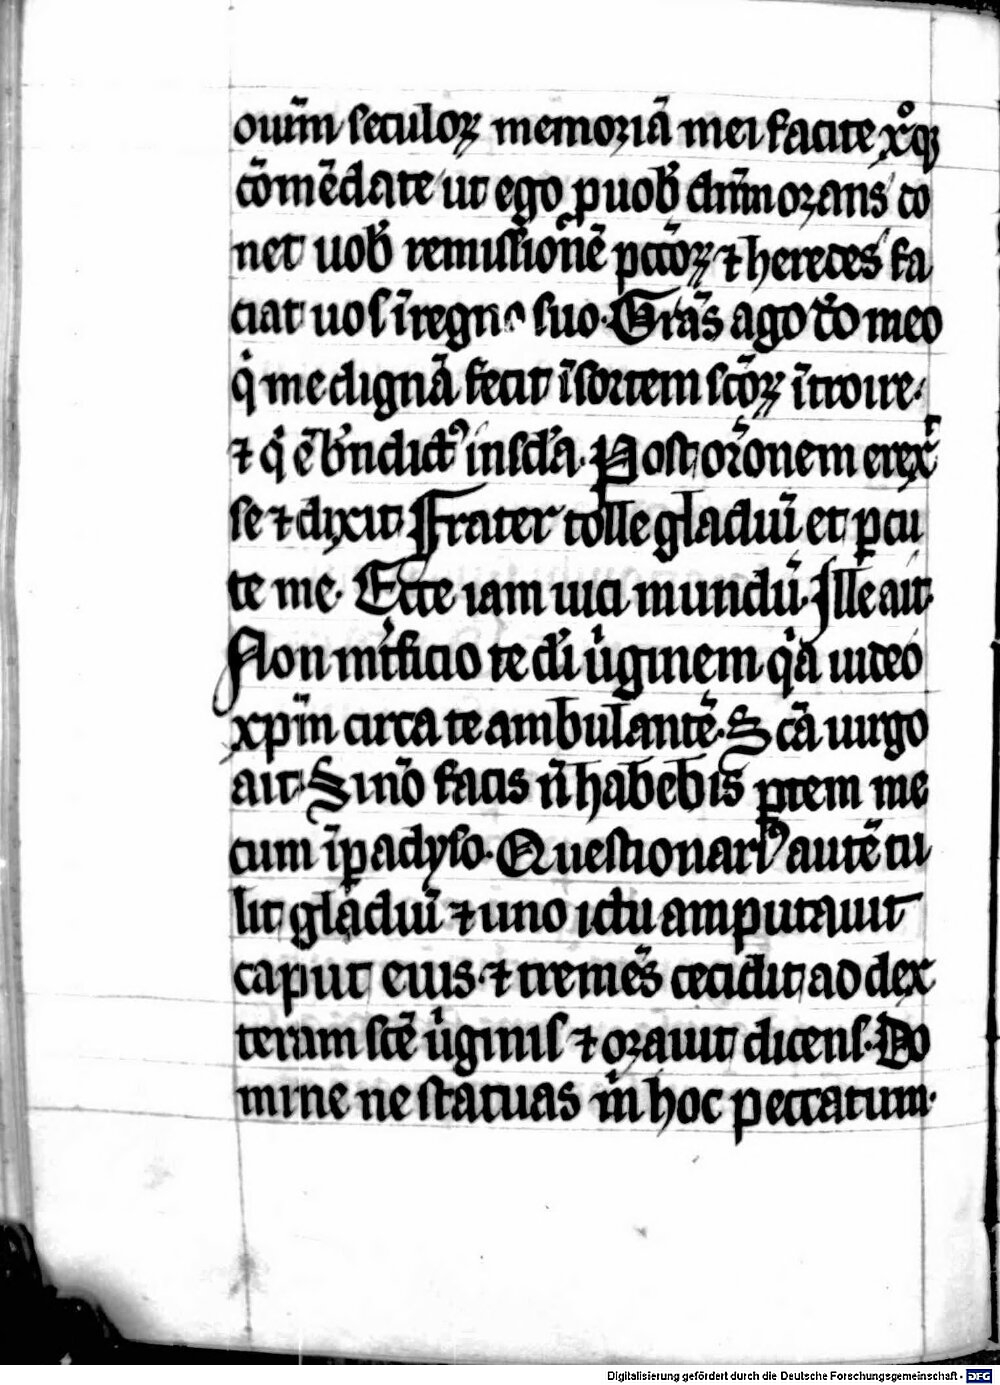 ouim̄ seculoꝝ memoriā mei facite xp̄oqꝫ
cōmēdate ut ego ꝓ uob̄ dn̄m orans do
net uob̄ remissionē pccōꝝ ⁊ heredes fa
ciat uos ī regno suo. Grās ago d̄o meo
q̇ me dignā fecit ī sortem scōꝝ ītroire.
⁊ q̇ ē bn̄dict⁹ in scl̄a. Post orōnem erex̄
se ⁊ dixit Frater tolle gladiū et ꝑcu
te me. Ecce iam uici mundū. Ille ait.
Non int̄ficio te dī uͥginem qͥa uideo
xp̄m circa te ambulantē. Scā uirgo
ait. Si nō facis n̄ habebis ꝑtem me
cum ī ꝑadyso. Questionari⁹ autē tu
lit gladiū ⁊ uno ictu amputauit
caput eius. ⁊ tremēs cecidit ad dex
teram scē uͥginis ⁊ orauit dicens. Do
mine ne statuas m̄ hoc peccatum.
Digitalisierung gefördert durch die Deutsche Forschungsgemeinschaft - DFG